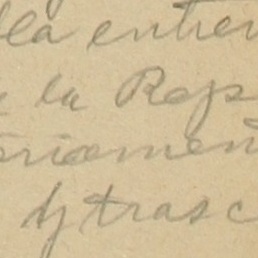 lla entre
la Rep
riamen
y trasc